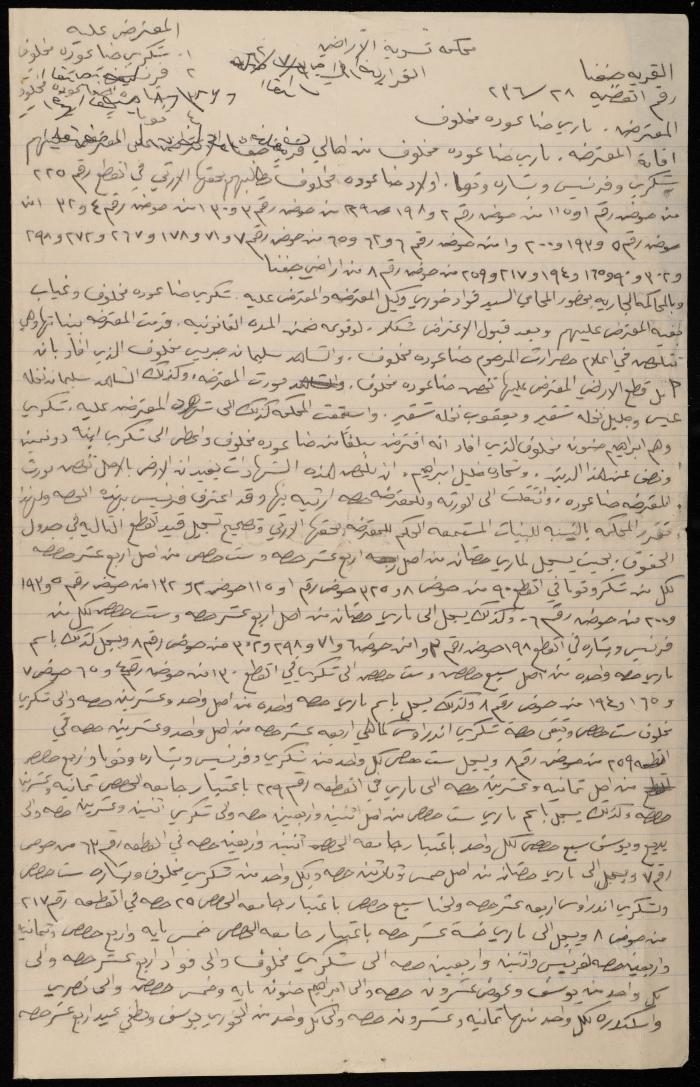 محكمة تسوية الاراضي
المعترض عليه
١. شكري حنا عوده مخلوف
القرية جفنا
القرار
رقم القضية ٢٨ / ٢٣٦
المعترض . ماري حنا عوده مخلوف
اقامة المعترضه . ماري حنا عوده مخلوف من اهالي قرية جفنا المعترض عليهم
شكري وفرنسيس وبشاره وتوما . اولاد حنا عوده مخلوف تطالبهم بحقها الارثي في القطع رقم ٢٢٥
من حوض رقم ١ و ١١٥ من حوض رقم ٢ و ١٩٨ من حوض رقم ٣ و ١٣٠ من حوض رقم ٤ و ٣٢ من
حوض رقم ٥ و ١٩٣ و ٢٠٠ و ١ من حوض رقم ٦ و ٦٢ و ٦٥ من حوض رقم ٧ و ٧١ و ١٧٨ و ٢٦٧ و ٢٧٢ و ٢٩٨
و ٣٠٢ و ٩٠ و ١٦٥ و ١٩٤ و ٢١٧ و ٢٥٩ من حوض رقم ٨ من اراضي جفنا
وبالمحاكمة الجارية بحضور المحامي السيد فؤاد خوري وكيل المعترضه والمعترض عليه . شكري حنا عوده مخلوف وغياب
بقية المعترض عليهم وبعد قبول الاعتراض شكلا . لوقوعه ضمن المدة القانونية . قدمت المعترضه بيناتها وهي
تتلخص في اعلام حصر ارث المرحوم حنا عوده مخلوف . والشاهد سليمان جريس مخلوف الذي افاد بان
كل قطع الاراضي المعترض عليها تخص حنا عوده مخلوف . مورث المعترضه . وكذلك الشاهد سليمان نخله
عيسى وجليل نخله شقير ويعقوب نخله شقير . واستمعت المحكمة كذلك الى شهود المعترض عليه . شكري
وهم ابراهيم حنون مخلوف الذي افاد انه اقترض مبلغا من حنا عوده مخلوف واعطى الى شكري ابنه دونمين
ونصف عن هذا الدين . وشحاده خليل ابراهيم . ان ملخص هذه الشهادات يفيد ان الارض بالاصل تخص مورث
المعترضه حنا عوده . وانتقلت الى الورثة وللمعترضه حصه ارثيه بها وقد اعترف فرنسيس بهذه الحصه ولهذا
تقرر المحكمة بالنسبة للبينات المستمعه الحكم للمعترضه بحقها الارثي وتصحيح تسجيل قيد القطع التاليه في جدول
الحقوق . بحيث يسجل لماري حصتان من اصل اربع عشر حصه و ست حصص من اصل اربع عشر حصه
لكل من شكري وتوما في القطع ٩٠ من حوض ٨ و ٢٢٥ حوض رقم ١ و ١١٥ حوض ٢ و ١٣٢ من حوض رقم ٥ و ١٩٣
و ٢٠٠ من حوض رقم ٦ . وكذلك يسجل الى ماري حصتان من اصل اربع عشر حصه وست حصص لكل من
فرنسيس وبشاره في القطع ١٩٨ حوض رقم ٣ و ١ من حوض ٦ و ٧١ و ٢٩٨ و ٣٠٢ من حوض رقم ٨ ويسجل كذلك باسم
ماري حصه واحده من اصل سبع حصص و ست حصص الى شكري في القطع ١٣٠ من حوض رقم ٤ و ٦٥ حوض ٧
و ١٦٥ و ١٩٤ من حوض رقم ٨ وكذلك يسجل باسم ماري حصه واحده من اصل واحد وعشرين حصه والى شكري
مخلوف ست حصص وتبقى حصة شكري اندراوس كما هي اربعه عشر حصه من اصل واحد وعشرين حصه في
القطعه ٢٥٩ من حوض رقم ٨ ويسجل ست حصص لكل واحد من شكري وفرنسيس وبشاره وتوما واربع حصص
من اصل ثمانيه وعشرين حصه الى ماري في القطعه رقم ٢٢٩ باعتبار جامعه الحصص ثمانيه وعشرين
حصه وكذلك يسجل باسم ماري ست حصص من اصل اثنين واربعين حصه والى شكري اثنين وعشرين حصه والى
بديع ويوسف سبع حصص لكل واحد باعتبار جامعه الحصص اثنين واربعين حصه في القطعه رقم ٦٣ من حوض
رقم ٧ ويسجل الى ماري حصتان من اصل خمس وثلاثين حصه ولكل واحد من شكري مخلوف وبشاره ست حصص
ولشكري اندراوس اربعه عشر حصه ولحنا سبع حصص باعتبار جامعه الحصص ٣٥ حصه في القطعه رقم ٢١٧
من حوض ٨ ويسجل الى ماري خمسة عشر حصه باعتبار جامعه الحصص خمس مايه واربع حصص وثمانيه
واربعين حصه لفرنسيس واثنين واربعين حصه الى شكري مخلوف والى فؤاد اربع عشر حصه والى
كل واحد من يوسف وعوض عشرون حصه والى ابراهيم حنون مايه وخمس حصص والى نصري
واسكندره لكل واحد منهما ثمانيه وعشرون حصه والى كل واحد من الخوري يوسف ولطفي عبيد اربع عشر حصه